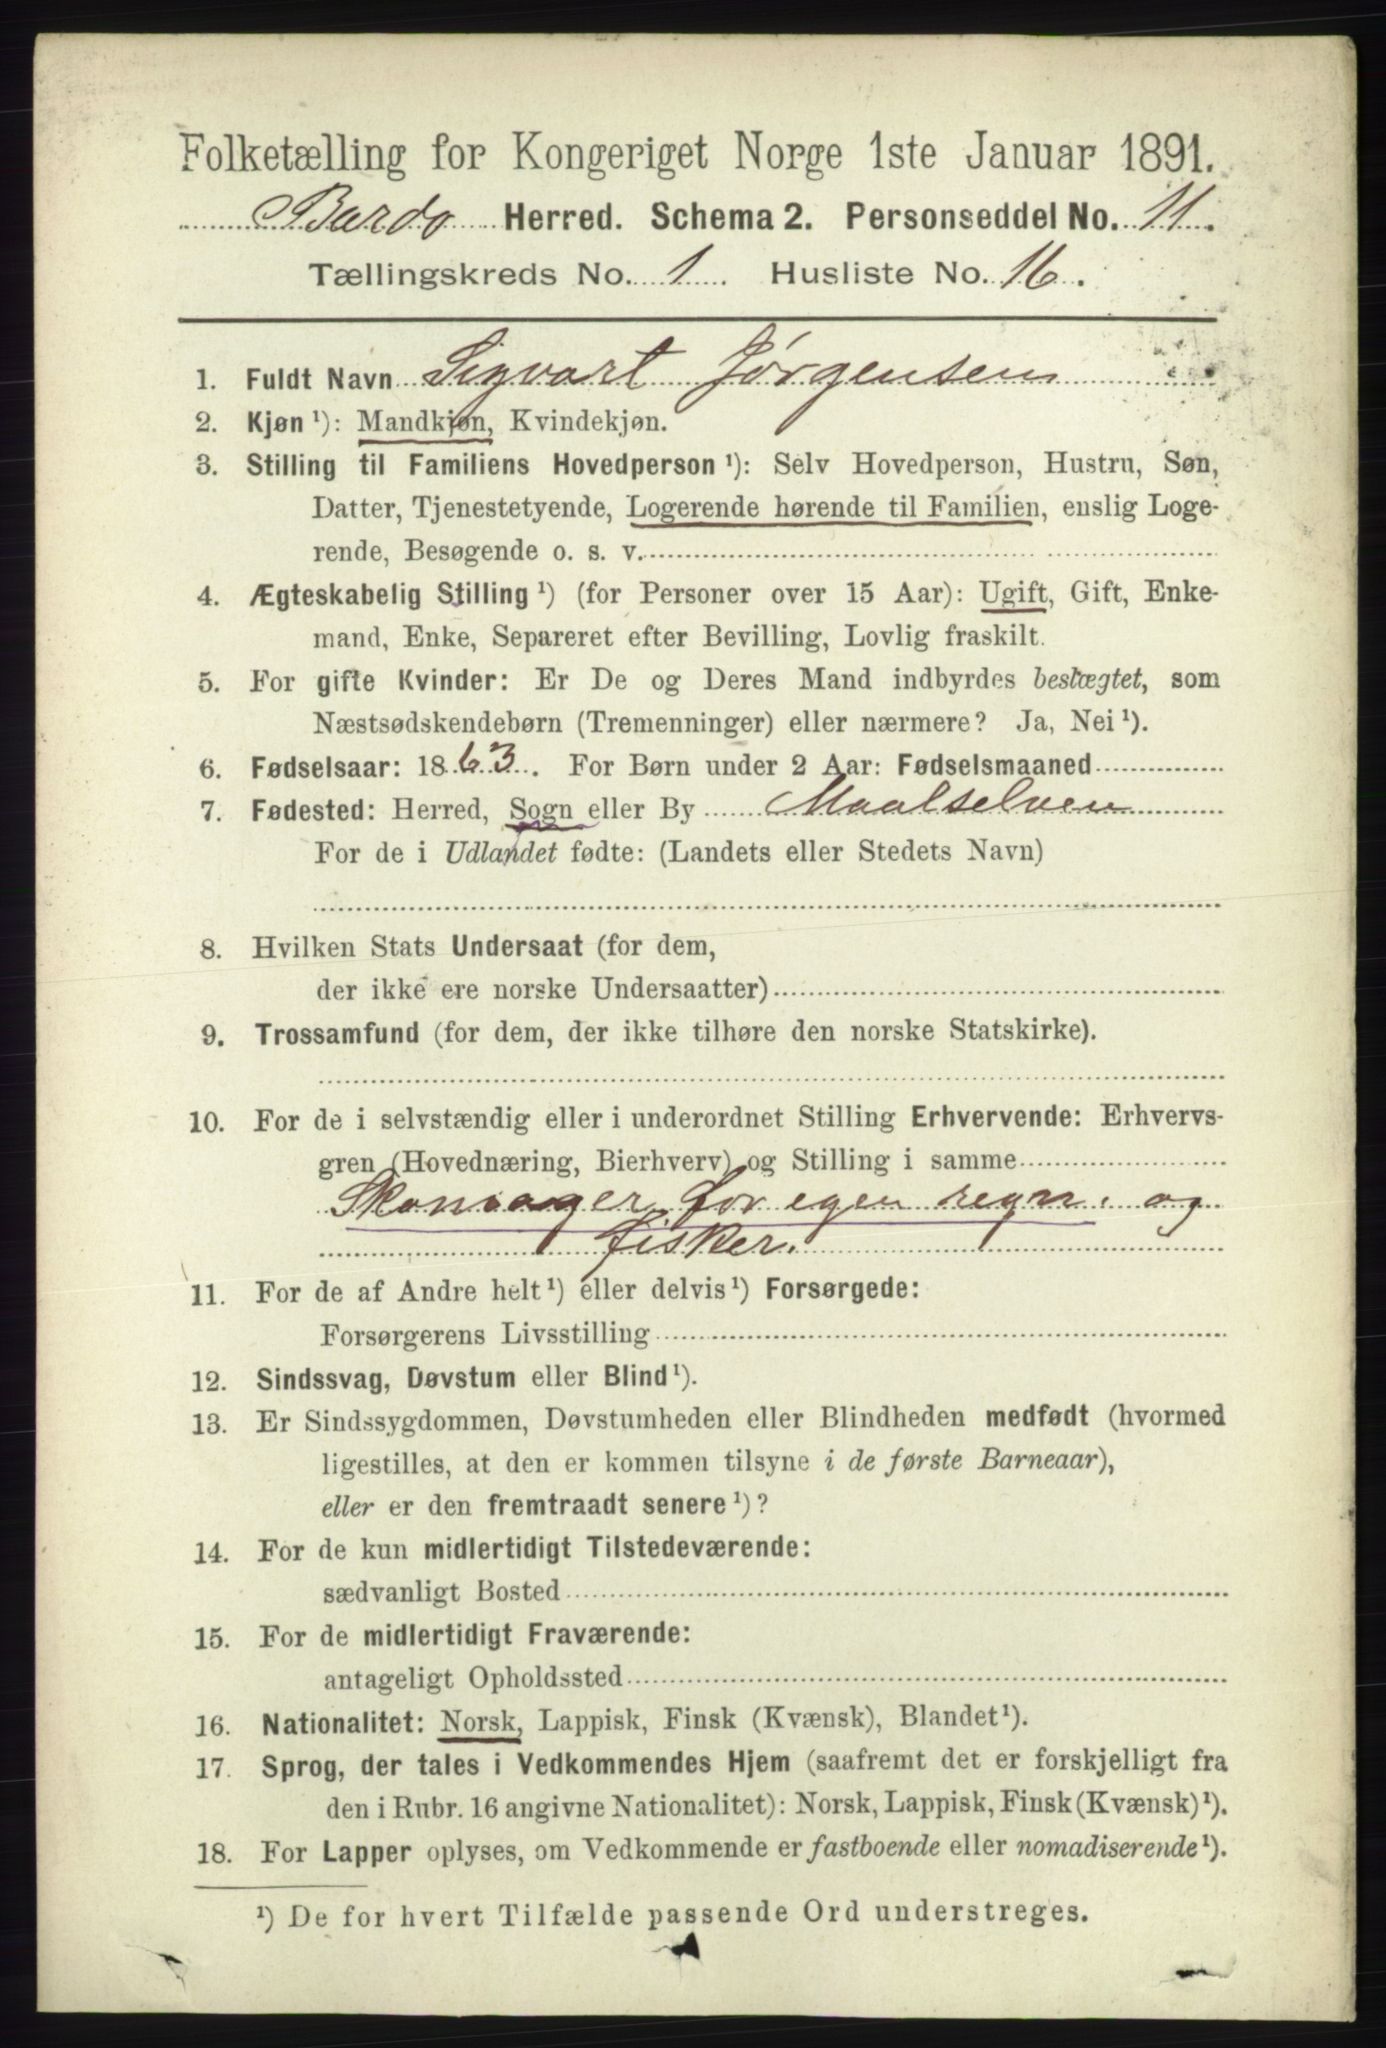 Folketælling for Kongeriget Norge 1ste Januar 1891.
Bardo Herred. Schema 2. Personseddel No. 11.
Tællingskreds No. 1. Husliste No. 16.
1. Fuldt Navn Sigvart Jørgensen
2. Kjøn ¹): Mandkjøn, Kvindekjøn.
3. Stilling til Familiens Hovedperson ¹): Selv Hovedperson, Hustru, Søn,
Datter, Tjenestetyende, Logerende hørende til Familien, enslig Loge-
rende, Besøgende o. s. v.
4. Ægteskabelig Stilling ¹) (for Personer over 15 Aar): Ugift, Gift, Enke-
mand, Enke, Separeret efter Bevilling, Lovlig fraskilt.
5. For gifte Kvinder: Er De og Deres Mand indbyrdes beslægtet, som
Næstsødskendebørn (Tremenninger) eller nærmere? Ja, Nei ¹).
6. Fødselsaar: 1863. For Børn under 2 Aar: Fødselsmaaned
7. Fødested: Herred, Sogn eller By Maalselven
For de i Udlandet fødte: (Landets eller Stedets Navn)
8. Hvilken Stats Undersaat (for dem,
der ikke ere norske Undersaatter)
9. Trossamfund (for dem, der ikke tilhøre den norske Statskirke).
10. For de i selvstændig eller i underordnet Stilling Erhvervende: Erhvervs-
gren (Hovednæring, Bierhverv) og Stilling i samme
Skomager for egen regn. og
fisker.
11. For de af Andre helt ¹) eller delvis ¹) Forsørgede:
Forsørgerens Livsstilling
12. Sindssvag, Døvstum eller Blind ¹).
13. Er Sindssygdommen, Døvstumheden eller Blindheden medfødt (hvormed
ligestilles, at den er kommen tilsyne i de første Barneaar),
eller er den fremtraadt senere ¹)?
14. For de kun midlertidigt Tilstedeværende:
sædvanligt Bosted
15. For de midlertidigt Fraværende:
antageligt Opholdssted
16. Nationalitet: Norsk, Lappisk, Finsk (Kvænsk), Blandet ¹).
17. Sprog, der tales i Vedkommendes Hjem (saafremt det er forskjelligt fra
den i Rubr. 16 angivne Nationalitet): Norsk, Lappisk, Finsk (Kvænsk) ¹).
18. For Lapper oplyses, om Vedkommende er fastboende eller nomadiserende ¹).
¹) De for hvert Tilfælde passende Ord understreges.